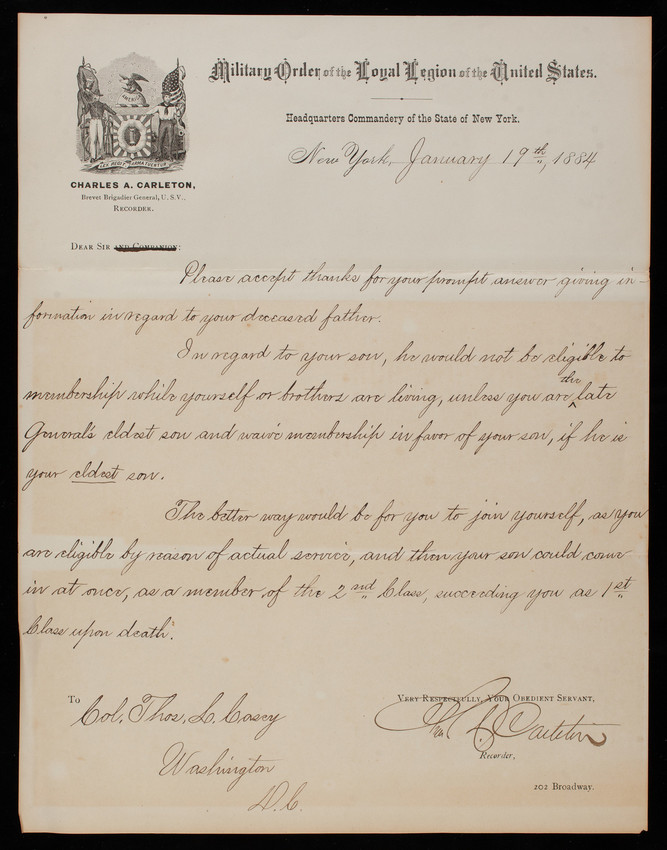 Military Order of the Loyal Legion of the United States.
Headquarters Commandery of the State of New York.
New York, January 19th, 1884
AMERICA
LEX REGIT ARMA TUENTUR
CHARLES A. CARLETON,
Brevet Brigadier General, U.S.V.,
RECORDER.
DEAR SIR AND COMPANION:
Please accept thanks for your prompt answer giving in-
formation in regard to your deceased father.
In regard to your son, he would not be eligible to
membership while yourself or brothers are living, unless you are the late
General's eldest son and waive membership in favor of your son, if he is
your eldest son.
The better way would be for you to join yourself, as you
are eligible by reason of actual service, and then your son could come
in at once, as a member of the 2nd Class, succeeding you as 1st
Class upon death.
To
Col. Thos. L. Casey
Washington
D.C.
VERY RESPECTFULLY, YOUR OBEDIENT SERVANT,
Chas A. Carleton
Recorder,
202 Broadway.